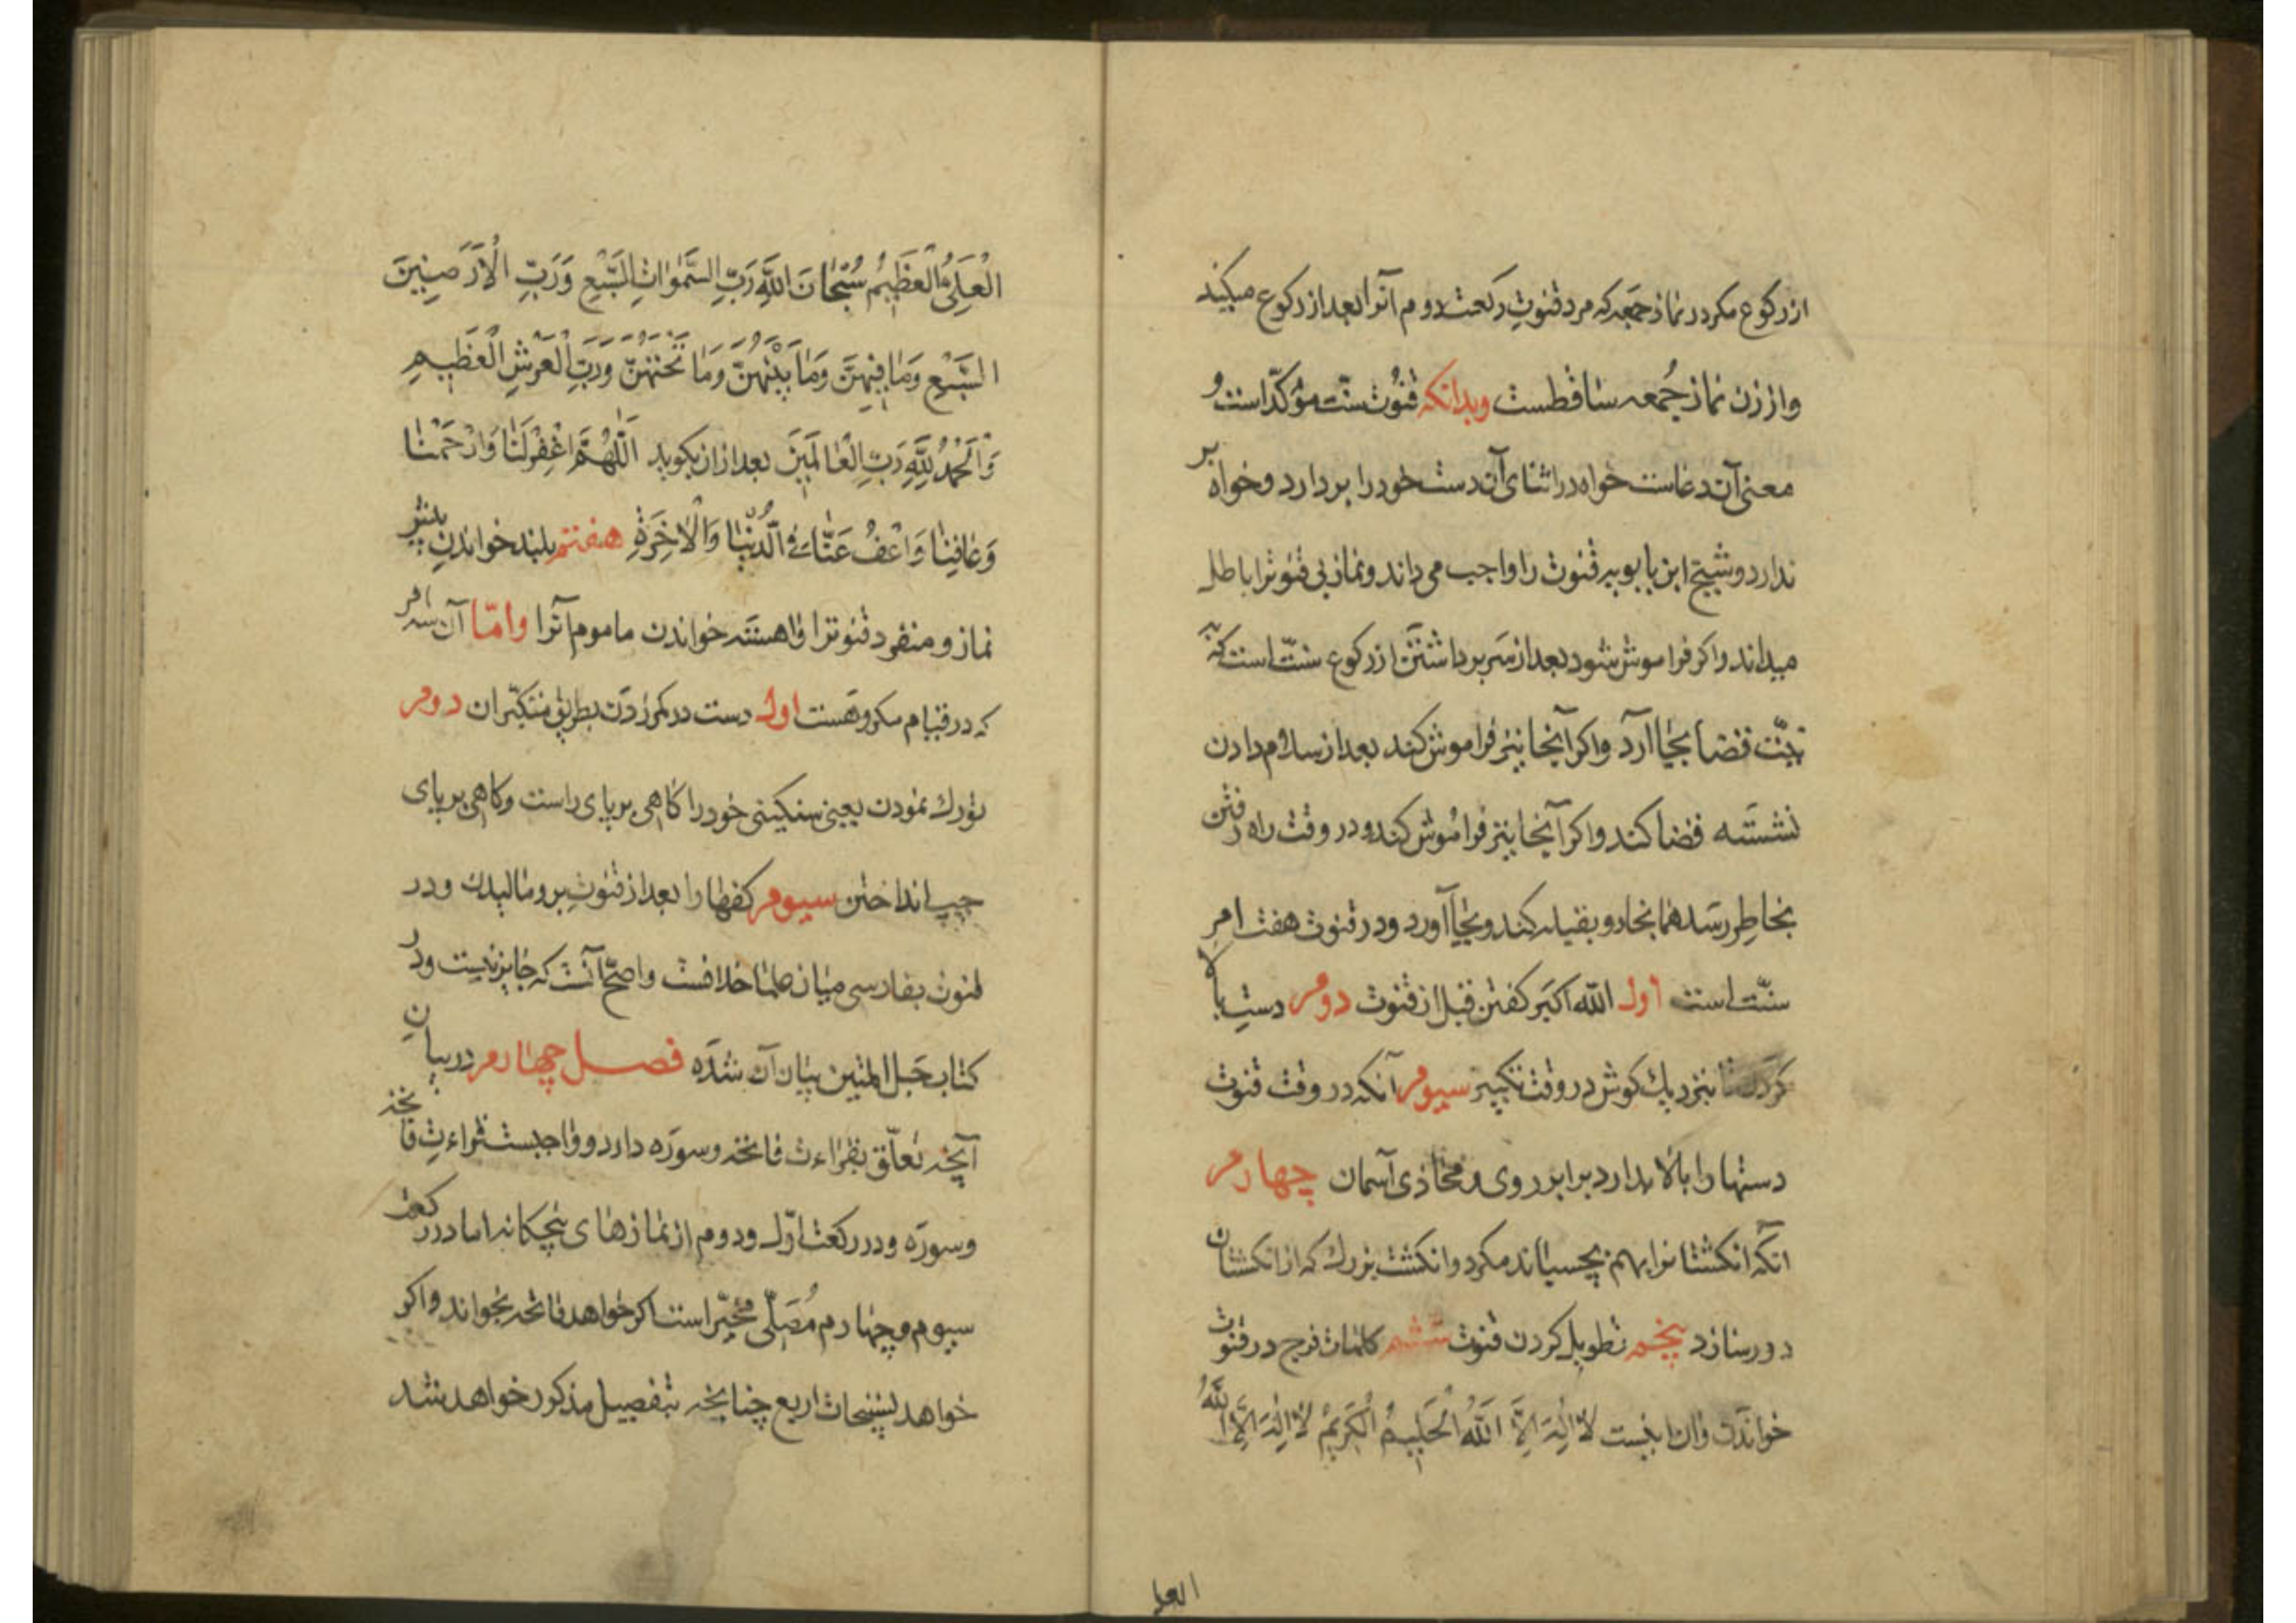 از رکوع مکر در نماز جمعه که مرد قنوتِ رکعت دوم آنرا بعد از رکوع میکند
واز زن نماز جُمعه ساقطست وبدانکه قنُوت سنّت مؤکّد است و
معنی آن دعاست خواه در اثنای آن دست خود را بردارد وخواه بر
ندارد وشیخ ابن بابویه قنوت را واجب می داند ونماز بی قنوترا باطل
میداند واکر فراموش شود بعد از سَر برداشتن از رکوع سنّت است که به
نیّت قضا بجا آرد واکر آنجا نیز فراموش کند بعد از سلام دادن
نشسته قضا کند واکر آنجا نیز فرامُوش کند ودر وقت راه رفتن
بخاطِر رسَد همانجا رو بقبله کند وبجا آورد ودر قنوت هفت امرِ
سنّت است اول الله اکبَر کفتن قبل از قنوت دوم دست بالا
کردن تا نزدیك کوش در وقت تکبیر سیوم آنکه در وقت قنوت
دستها را بالا بدارد برابر روی ومحاذی آسمان چهارم
آنکه انکشتانرا بهم بچسباند مکر دو انکشت بزرك که از انکشتان
دور سازد پنجم تطویل کردن قنوت ششم کلمات فرج در قنوت
خواندن وآن اینست لا اِلٰهَ اِلَّا اللّٰهُ الْحَلیمُ الْکَریمُ لا اِلٰهَ اِلَّا اللّٰهُ
العلی
الْعَلِیُّ الْعَظیمُ سُبْحانَ اللّٰهِ رَبِّ السَّمٰوٰاتِ السَّبْعِ وَرَبِّ الْاَرَضینَ
السَّبْعِ وَمٰا فیهِنَّ وَمٰا بَیْنَهُنَّ وَمٰا تَحْتَهُنَّ وَرَبِّ الْعَرْشِ الْعَظیمِ
وَالْحَمْدُ لِلّٰهِ رَبِّ الْعٰالَمینَ بعد از ان بکوید اَللّٰهُمَّ اغْفِرْ لَنٰا وَارْحَمْنٰا
وَعٰافِنٰا وَاعْفُ عَنّٰا فِی الدُّنْیٰا وَالْاٰخِرَةِ هفتم بلند خواندن پیش
نماز ومنفرد قنوترا واهسته خواندن ماموم آنرا وامّا آن سه امر
که در قیام مکروهست اول دست در کمر زدن بطریق متکبّران دوم
تورك نمودن یعنی سنکینی خود را کاهی بر پای راست وکاهی بر پای
چپ انداختن سیوم کفها را بعد از قنوت برو مالیدن ودر
قنوت بفارسی میان علما خلافست واصحّ آنست که جایز نیست ودر
کتاب حَبل المتین بیان آن شده فصل چهارم در بیان
آنچه تعلّق بقراءت فاتحه وسوره دارد وواجبست قراءتِ فاتحه
وسوره ودر رکعت اوّل ودوم از نمازهای پنجکانه اما در رکعت
سیوم وچهارم مُصَلّی مخیّر است اکر خواهد فاتحه بخواند واکر
خواهد تسبیحات اربع چنانچه بتفصیل مذکور خواهد شد